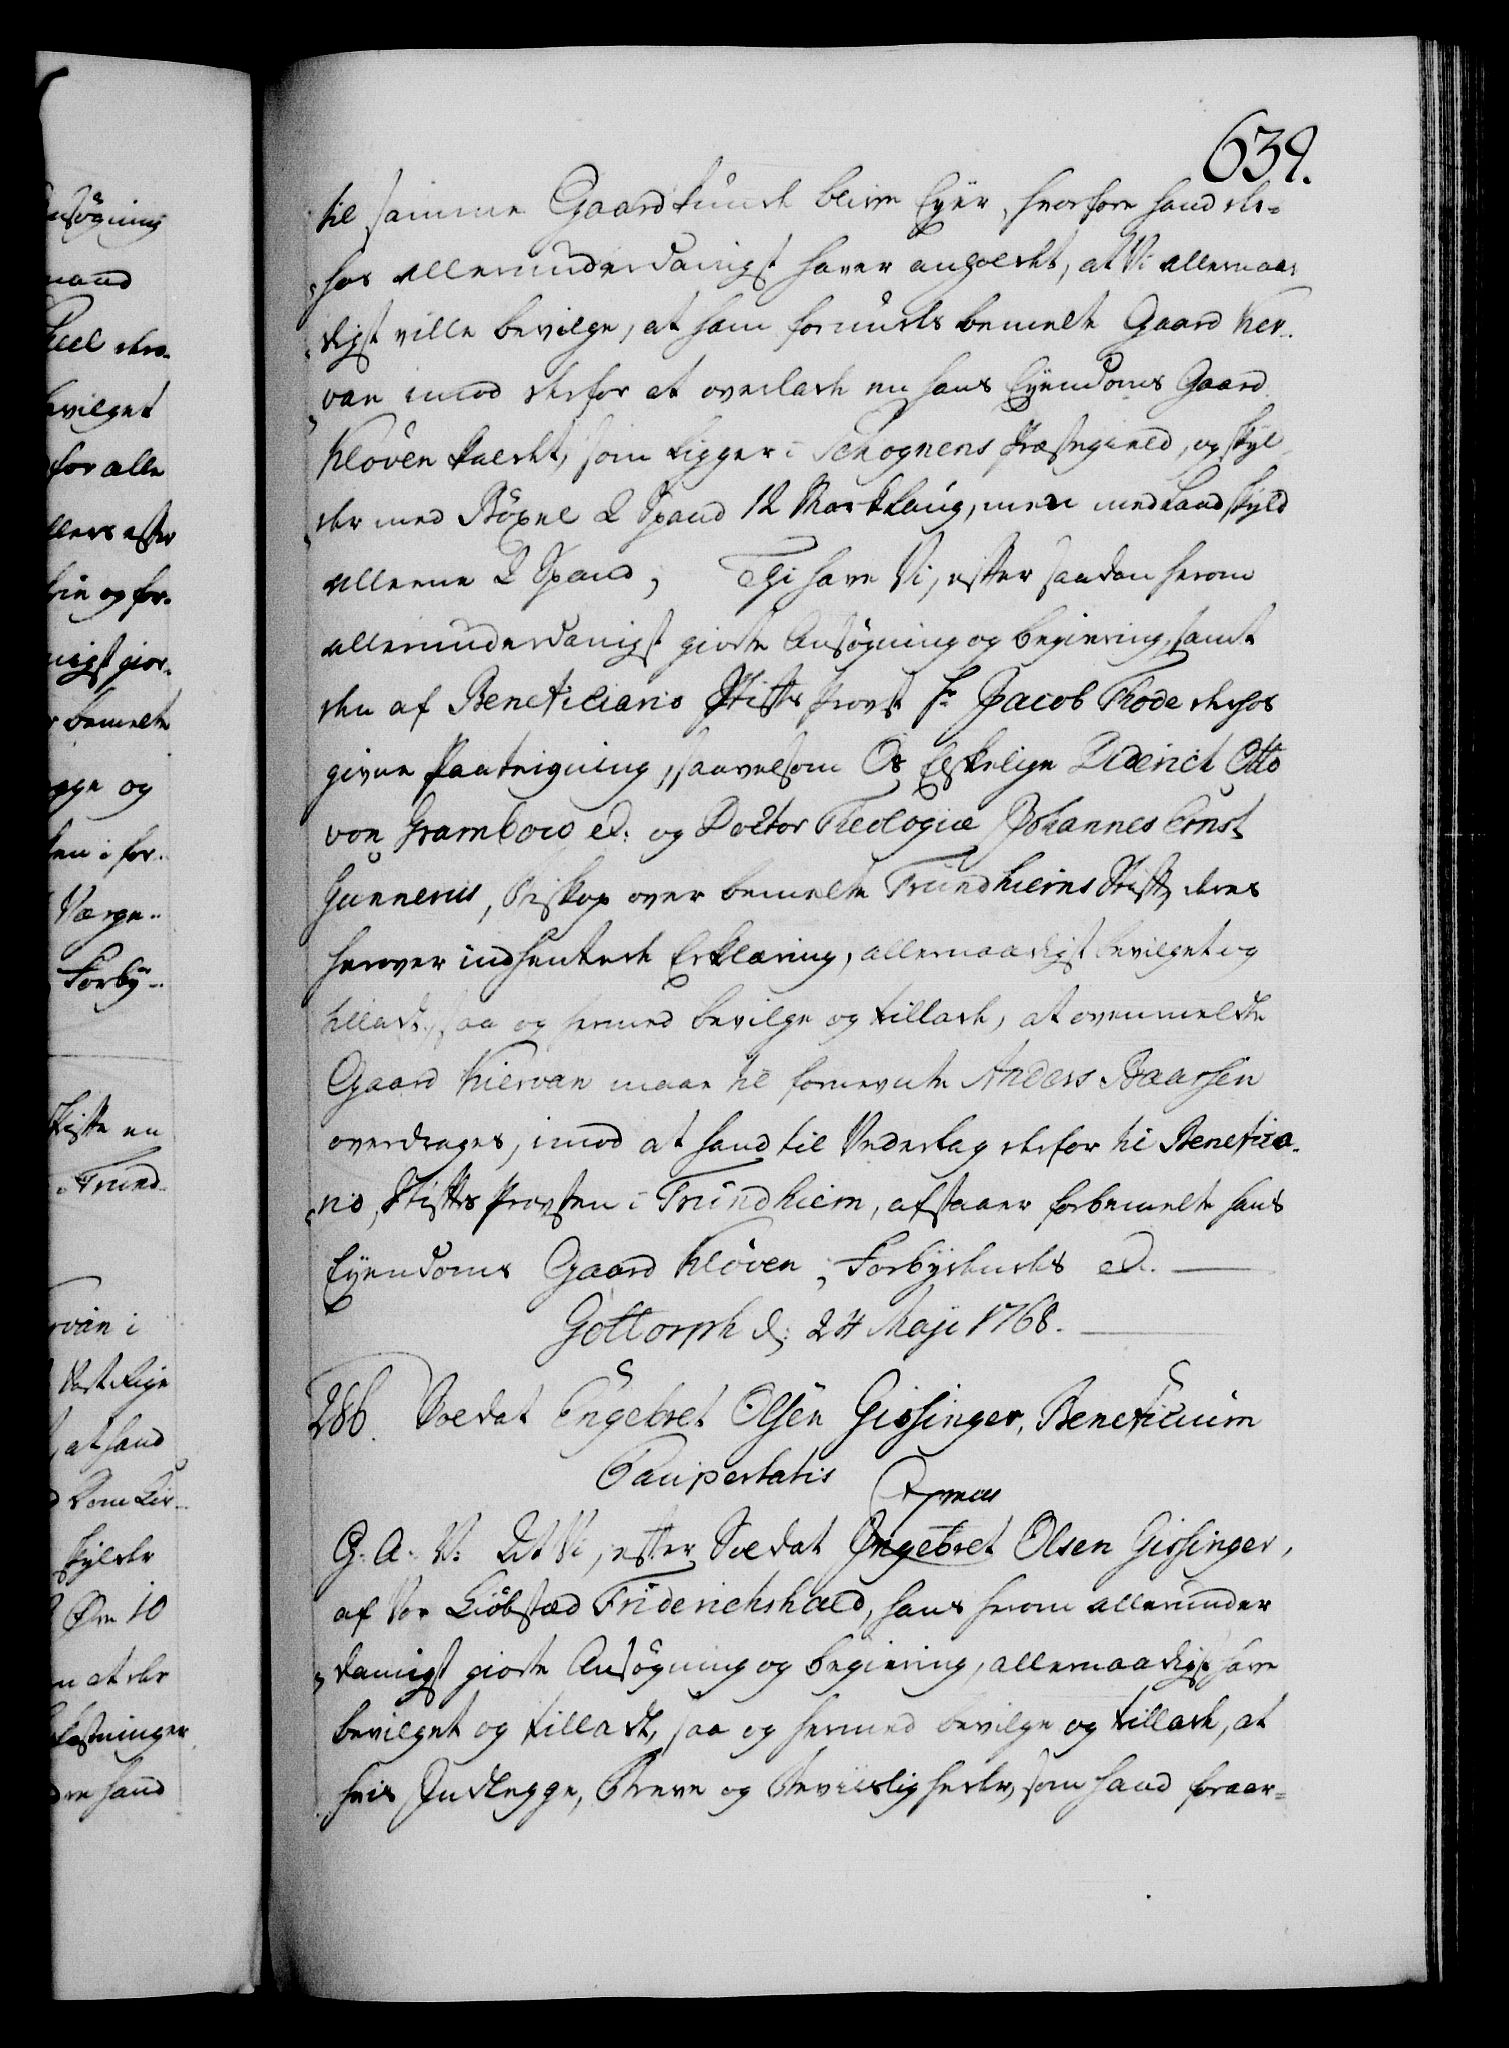 639.
til samme Gaard kunde blive Eyer, hvorfore hand de-
hos allerunderdanigst haver anholdet, at Vi allernaa-
digst ville bevilge, at ham forundes bemelte Gaard Ker-
van imod derfor at overlade en hans Eyendoms Gaard
Kløven kaldet, som ligger i Schognens Præstegield, og skyl-
der med Böxel 2 Spand 12 Marklaug, men med Landskyld
alleene 2 Spand; Thi have Vi, efter saadan herom
allerunderdanigst giorte Ansøgning og begiering, samt
den af Beneficiario StiftsProvst Hr. Jacob Rode derhos
givne Paategning, saavelsom Os Elskelige Diderich Otto
von Grambow etc: og Doctor Theologiæ Johannes Ernst
Gunnerus, Biskop over bemelte Trundhiems Stift, deres
herover indhentede Erklæring, allernaadigst bevilget og
tilladt, saa og hermed bevilge og tillade, at ovenmeldte
Gaard Kiervan maae til fornevnte Anders Baarsen
overdrages, imod at hand til Vederlag derfor til Beneficia-
rio, StiftsProvsten i Trundhiem, afstaaer forbemelte hans
Eyendoms Gaard Kløven, Forbydendes etc.
Gottorph d: 24 Maji 1768.
286. Soldat Engebret Olsen Gissinger, Beneficium
Paupertatis
Expressus
C. A. V. At Vi, efter Soldat Engebret Olsen Gissinger,
af Vor Kiöbstæd Friderichshald, hans herom allerunder-
danigst giorte Ansøgning og begiering, allernaadigst have
bevilget og tilladt, saa og hermed bevilge og tillade, at
hvis Indlegge, Breve og Beviisligheder, som hand foraar-